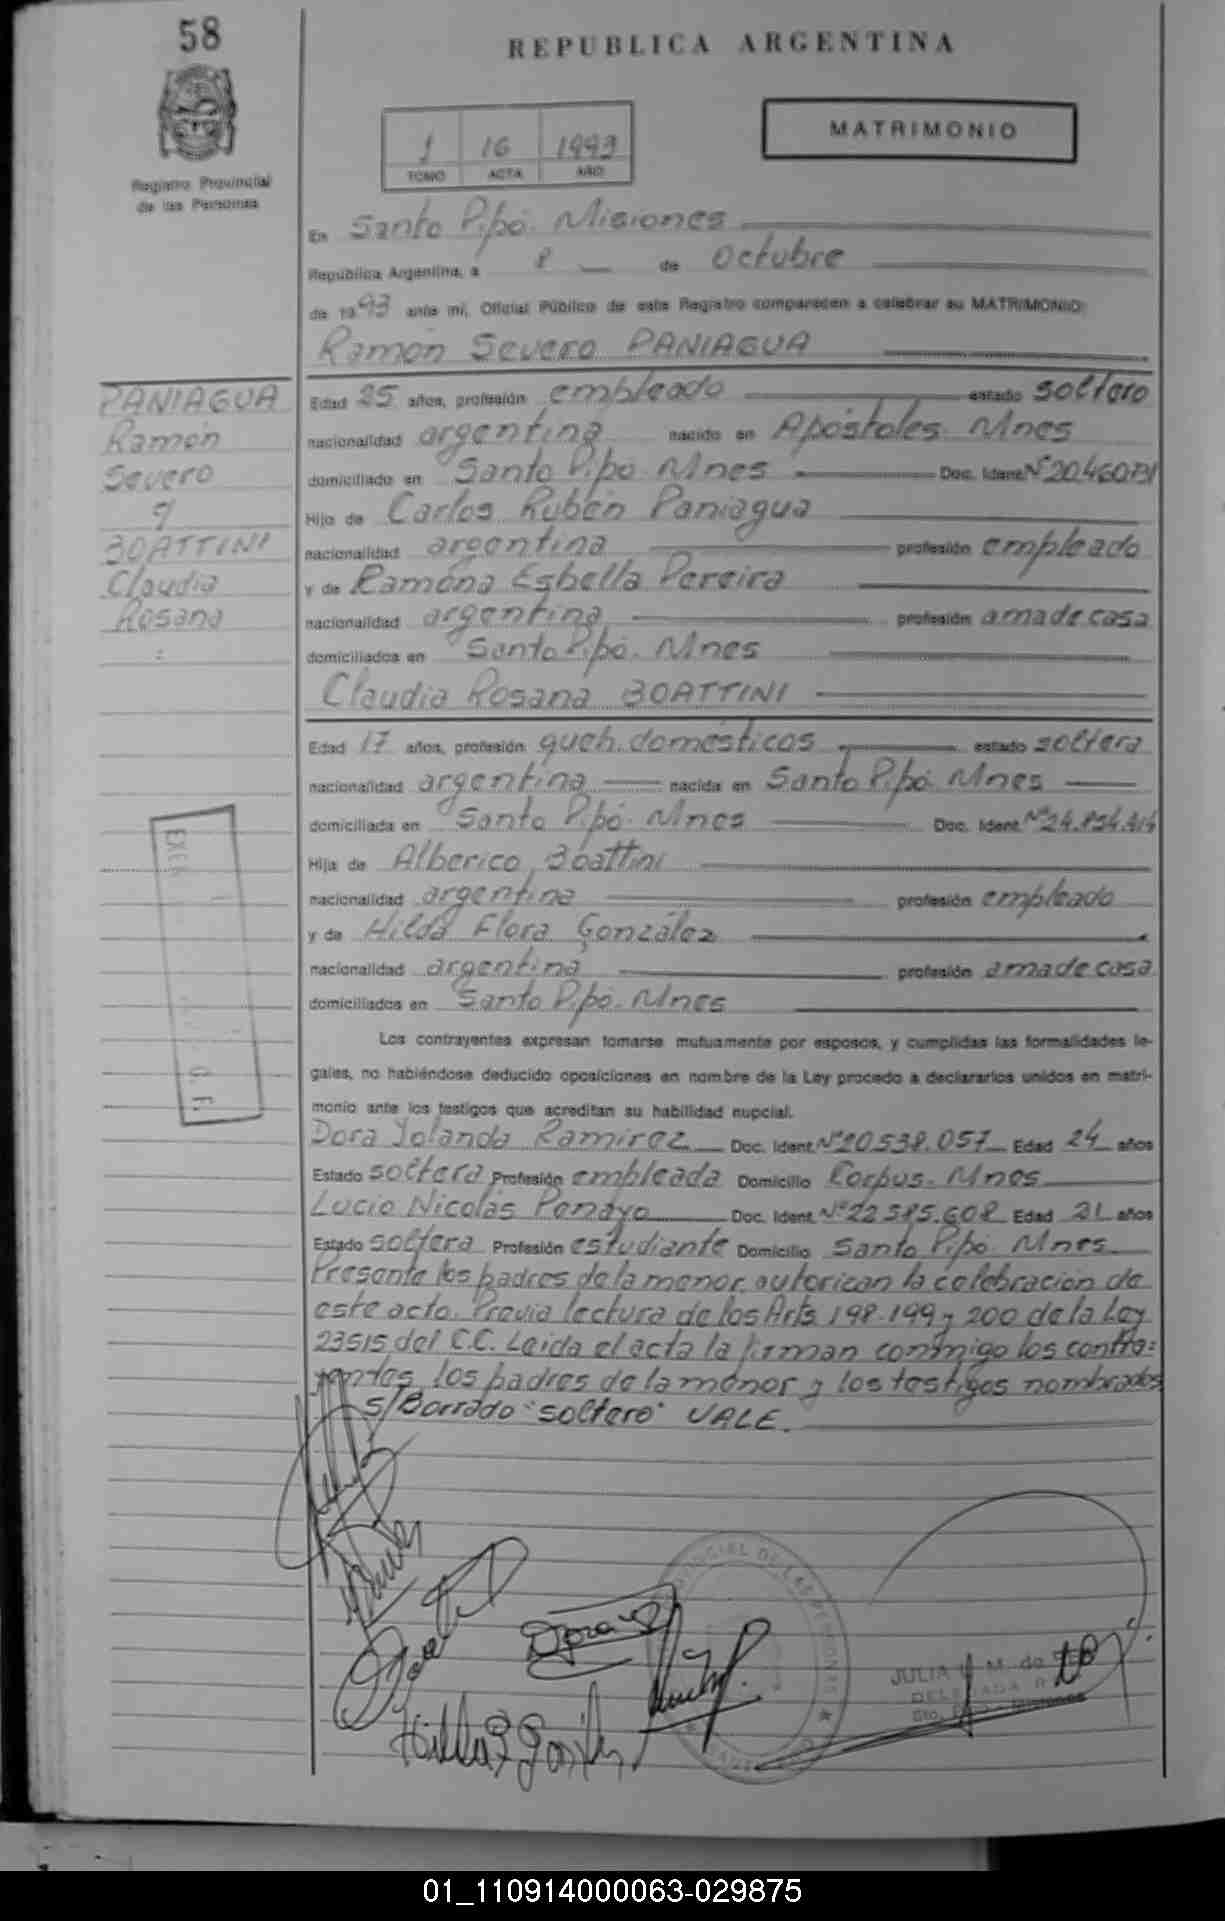 58
REPUBLICA ARGENTINA
Registro Provincial
de las Personas
1 16 1993
TOMO ACTA AÑO
MATRIMONIO
En Santo Pipó. Misiones
República Argentina, a 8 de Octubre
de 1993 ante mí, Oficial Público de este Registro comparecen a celebrar su MATRIMONIO:
Ramón Severo PANIAGUA
PANIAGUA
Ramón
Severo
y
BOATTINI
Claudia
Rosana
Edad 25 años, profesión empleado estado soltero
nacionalidad argentina nacido en Apóstoles. Mnes
domiciliado en Santo Pipó. Mnes Doc. Ident. Nº 20.460.731
Hijo de Carlos Rubén Paniagua
nacionalidad argentina profesión empleado
y de Ramona Esbella Pereira
nacionalidad argentina profesión ama de casa
domiciliados en Santo Pipó. Mnes
Claudia Rosana BOATTINI
Edad 17 años, profesión queh. domésticos estado soltera
nacionalidad argentina nacida en Santo Pipó. Mnes
domiciliada en Santo Pipó. Mnes Doc. Ident. Nº 24.834.414
Hija de Alberico Boattini
nacionalidad argentina profesión empleado
y de Hilda Flora González
nacionalidad argentina profesión ama de casa
domiciliados en Santo Pipó. Mnes
Los contrayentes expresan tomarse mutuamente por esposos, y cumplidas las formalidades le-
gales, no habiéndose deducido oposiciones en nombre de la Ley procedo a declararlos unidos en matri-
monio ante los testigos que acreditan su habilidad nupcial.
Dora Yolanda Ramirez Doc. Ident. Nº 20.538.057 Edad 24 años
Estado soltera Profesión empleada Domicilio Corpus. Mnes
Lucio Nicolás Penayo Doc. Ident. Nº 22.585.608 Edad 21 años
Estado soltera Profesión estudiante Domicilio Santo Pipó. Mnes.
Presente los padres de la menor autorizan la celebración de
este acto. Previa lectura de los Arts. 198-199 y 200 de la Ley
23515 del C.C. Leida el acta la firman conmigo los contra=
yentes, los padres de la menor y los testigos nombrados
s/Borrado "soltero" VALE.
Dora
Hilda F González
JULIA M. de
DELEGADA
Sto. Pipó - Misiones
01_110914000063-029875